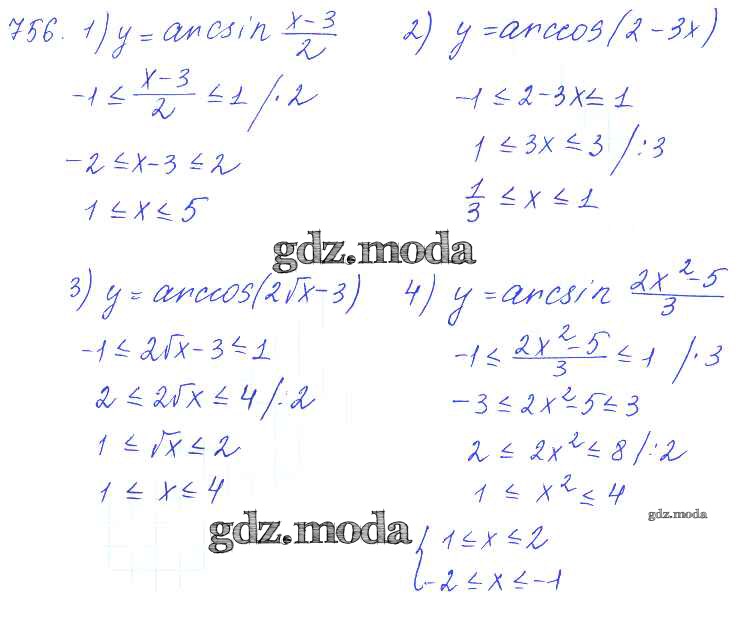 756. 1) y = arcsin (x-3)/2
-1 ≤ (x-3)/2 ≤ 1 /·2
-2 ≤ x-3 ≤ 2
1 ≤ x ≤ 5
2) y = arccos(2-3x)
-1 ≤ 2-3x ≤ 1
1 ≤ 3x ≤ 3 /:3
1/3 ≤ x ≤ 1
gdz.moda
3) y = arccos(2√x-3)
-1 ≤ 2√x-3 ≤ 1
2 ≤ 2√x ≤ 4 /:2
1 ≤ √x ≤ 2
1 ≤ x ≤ 4
gdz.moda
4) y = arcsin (2x²-5)/3
-1 ≤ (2x²-5)/3 ≤ 1 /·3
-3 ≤ 2x²-5 ≤ 3
2 ≤ 2x² ≤ 8 /:2
1 ≤ x² ≤ 4
gdz.moda
{ 1 ≤ x ≤ 2
-2 ≤ x ≤ -1